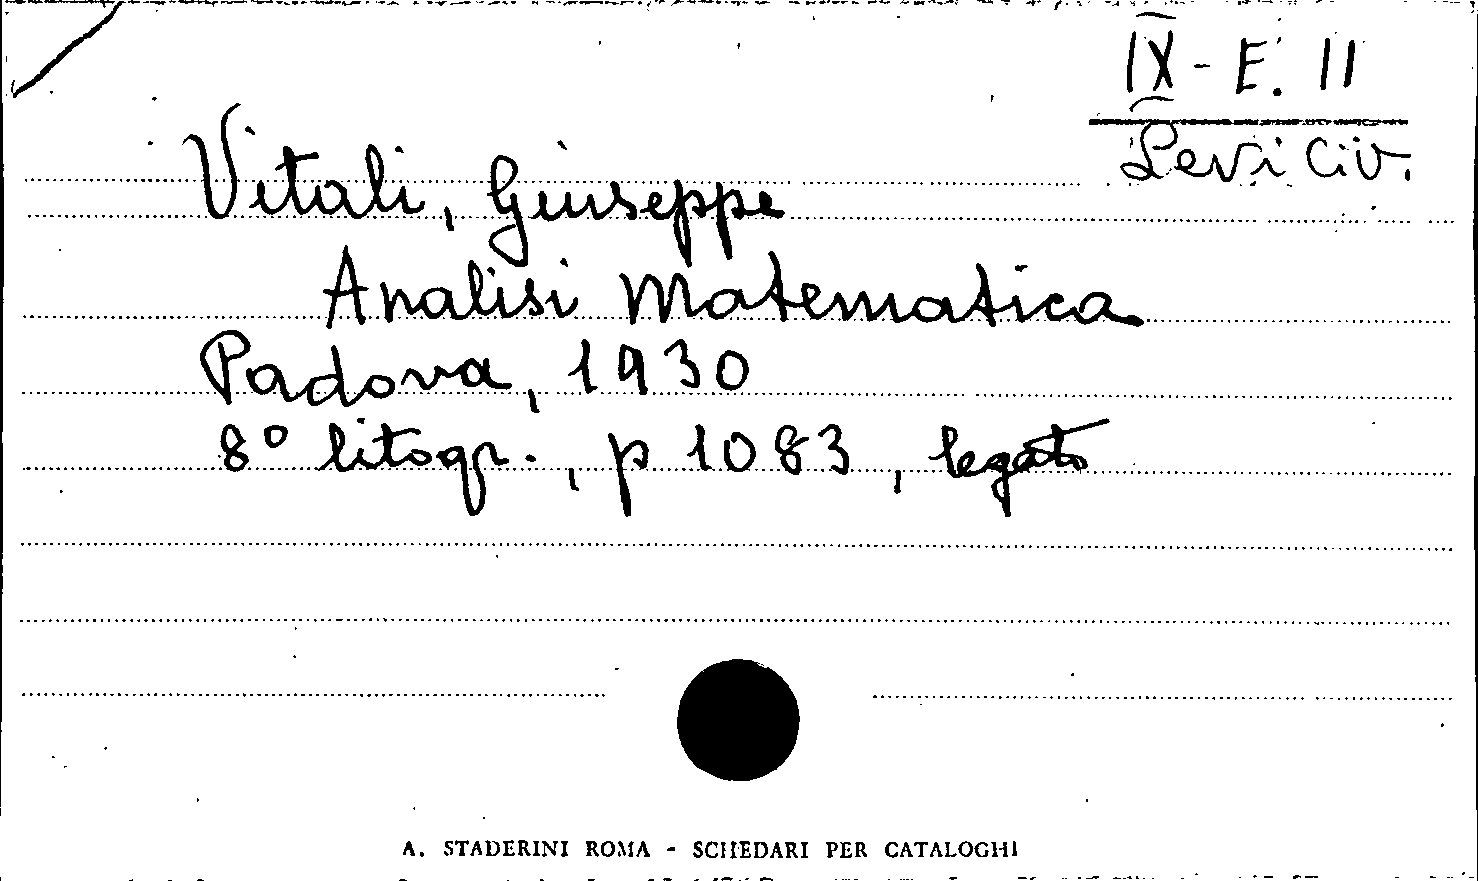 IX - E. 11
Levi Civ.
Vitali, Giuseppe
Analisi Matematica
Padova, 1930
8° litogr., p 1083, legato
A. STADERINI ROMA - SCHEDARI PER CATALOGHI